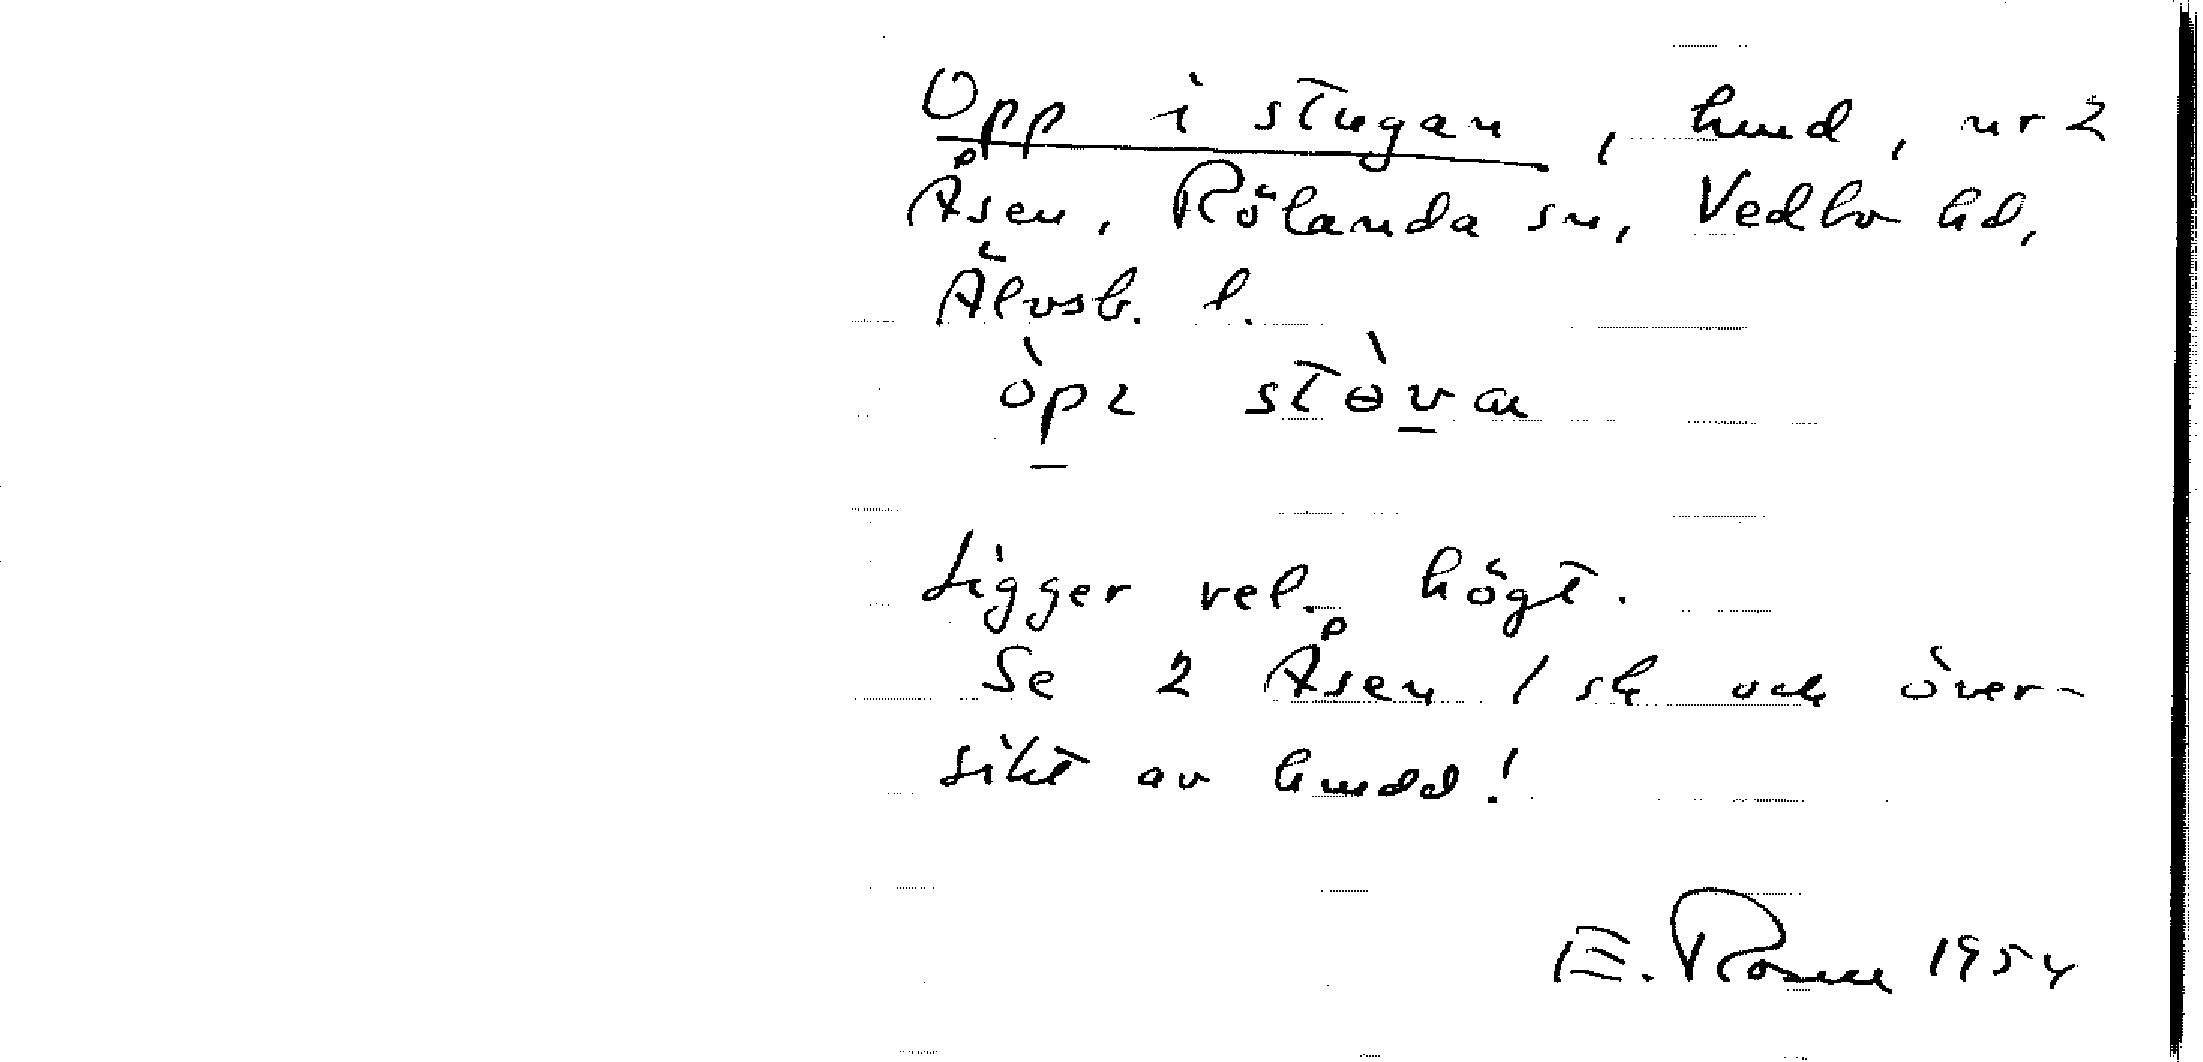 Opp i stugan, hmd, nr 2
Åsen, Rölanda sn, Vedbo hd,
Älvsb. l.
òpɩ stə̀va
Ligger rel. högt.
Se 2 Åsen / sk och över-
sikt av hmdd!
E. Rosen 1954